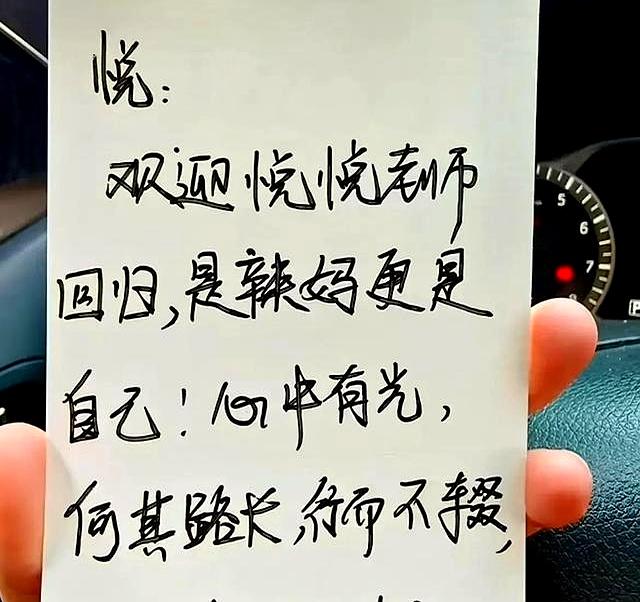 悦:
欢迎悦悦老师
回归,是辣妈更是
自己!心中有光,
何其路长,行而不辍,
5
6
7
8
P